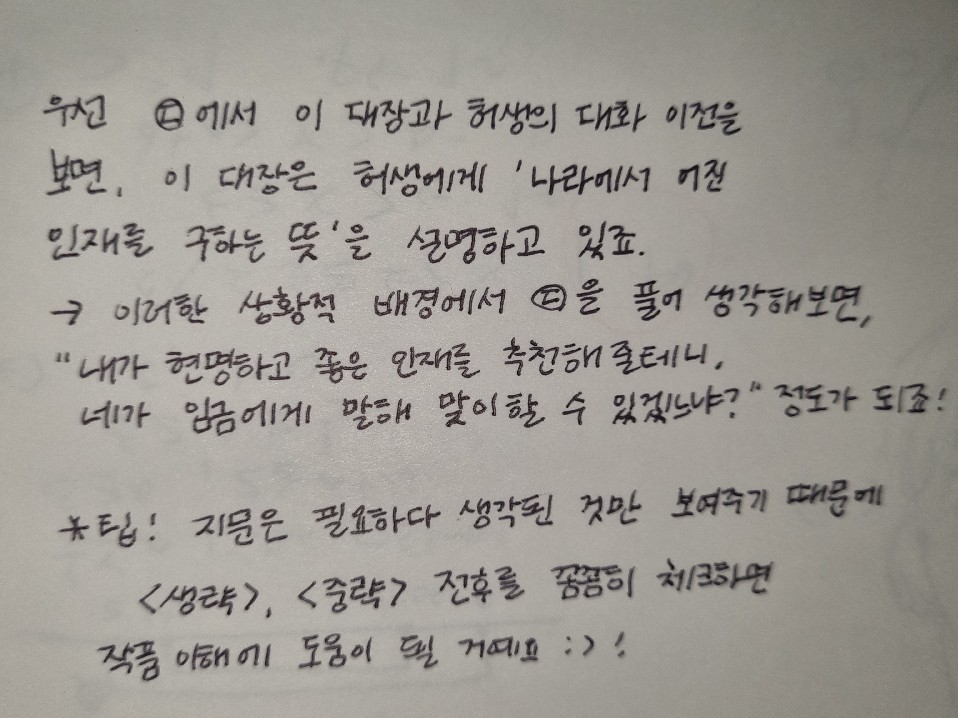 우선 ㉤에서 이 대장과 허생의 대화 이전을
보면, 이 대장은 허생에게 '나라에서 어진
인재를 구하는 뜻'을 설명하고 있죠.
→ 이러한 상황적 배경에서 ㉤을 풀어 생각해보면,
"내가 현명하고 좋은 인재를 추천해 줄테니,
네가 임금에게 말해 맞이할 수 있겠느냐?" 정도가 되죠!
*팁! 지문은 필요하다 생각된 것만 보여주기 때문에
<생략>, <중략> 전후를 꼼꼼히 체크하면
작품 이해에 도움이 될 거예요 :>!